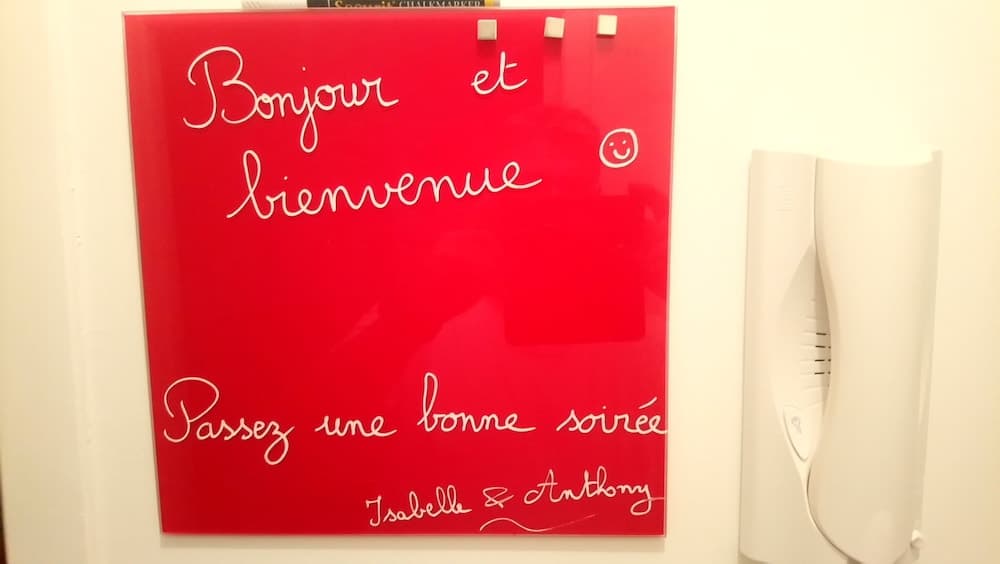 Securit CHALKMARKER
Bonjour et
bienvenue
Passez une bonne soirée
Isabelle & Anthony